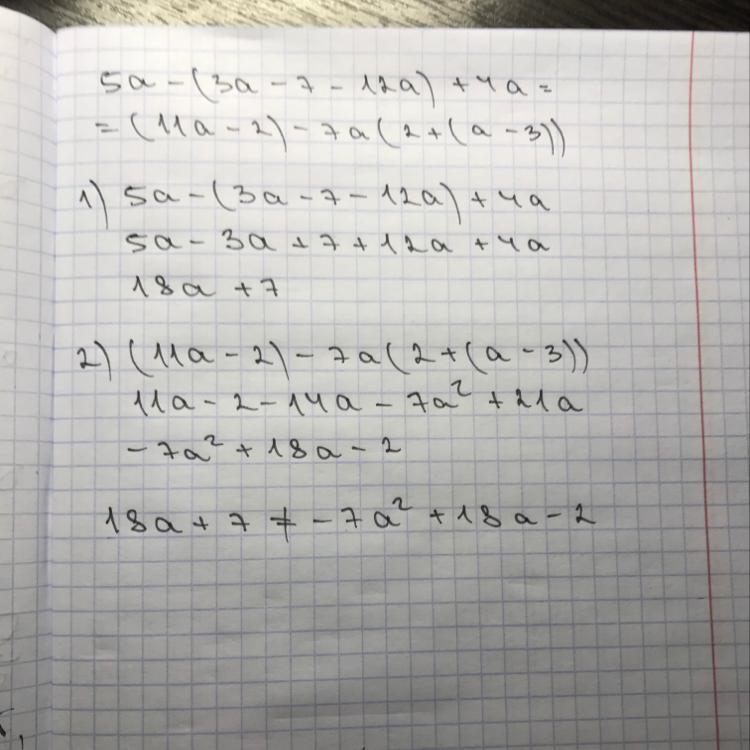 5a - (3a - 7 - 12a) + 4a =
= (11a - 2) - 7a(2 + (a - 3))
1) 5a - (3a - 7 - 12a) + 4a
5a - 3a + 7 + 12a + 4a
18a + 7
2) (11a - 2) - 7a(2 + (a - 3))
11a - 2 - 14a - 7a² + 21a
- 7a² + 18a - 2
18a + 7 ≠ - 7a² + 18a - 2